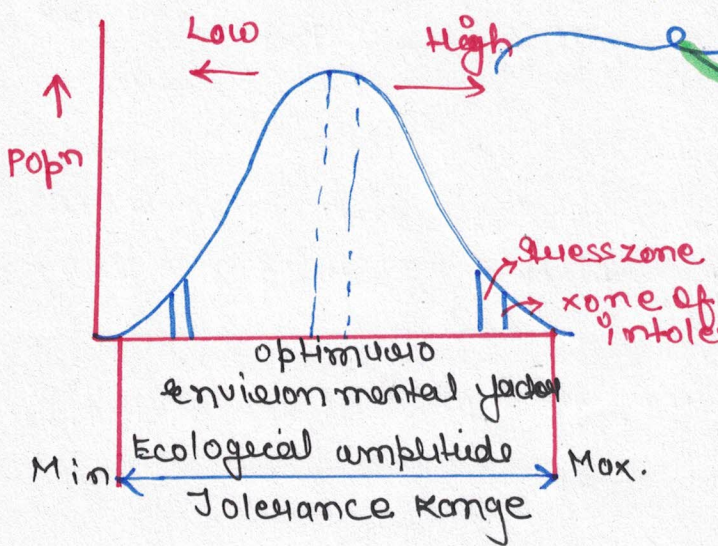 Low
High
Popn
Stress zone
zone of
intole
optimum
environmental factor
Ecological amplitude
Min
Max.
Tolerance Range